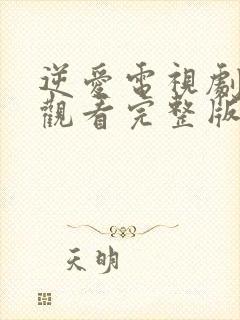 逆愛電視劇
觀看完整版
天明